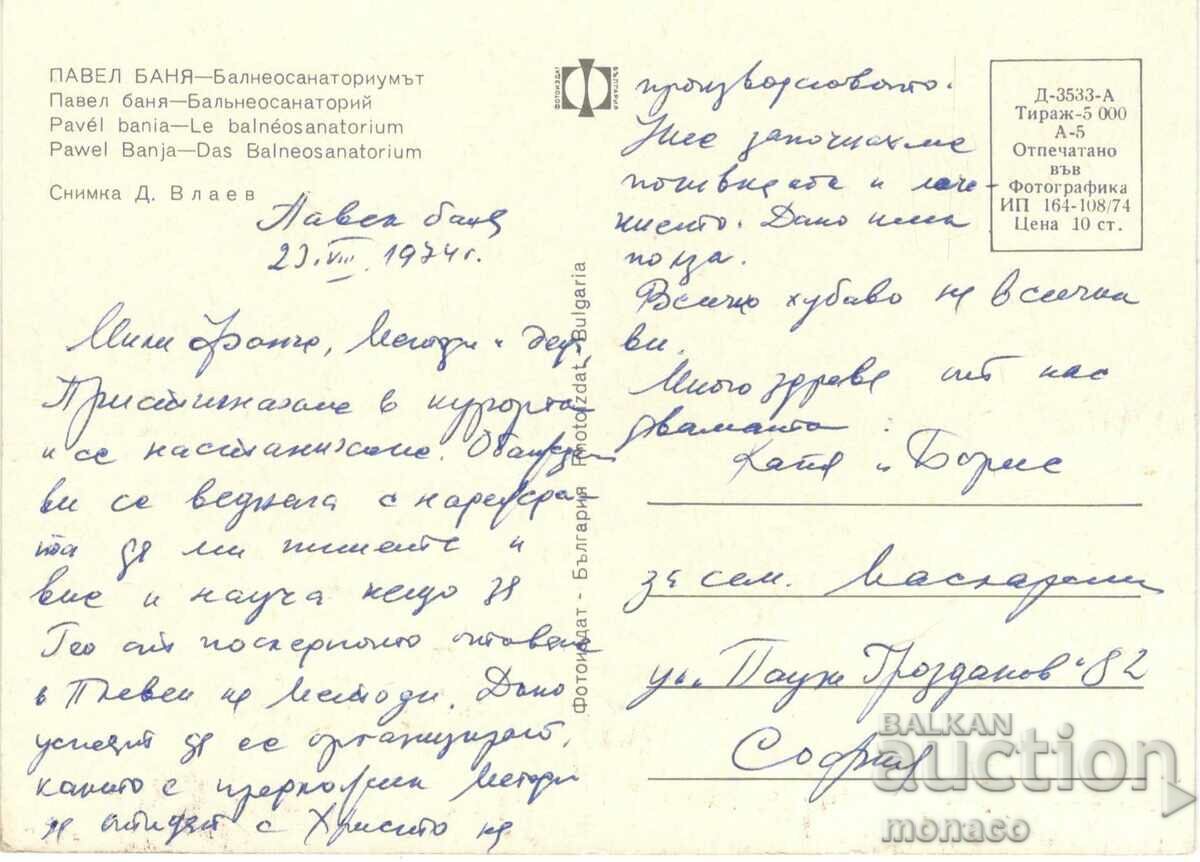 ПАВЕЛ БАНЯ—Балнеосанаториумът
Павел баня—Бальнеосанаторий
Pavél bania—Le balnéosanatorium
Pawel Banja—Das Balneosanatorium
Снимка Д. Влаев
Павел баня
23.VIII.1974г.
Мили Фанче, Методи и деца,
Пристигнахме в курорта
и се настанихме. Обаждам
ви се веднага с
та да ми пишете и
вие и науча нещо за
Гео от последното отиване
в Плевен на Методи. Дано
успеят да се организират,
както е Методи
да отидат с Христо на
производството.
Ние започнахме
почивката и лече-
нието. Дано има
полза.
Всичко хубаво на всички
ви.
Много здраве от нас
двамата.
Катя и Борис
за сем.
ул. "Паун Грозданов" 82
София
ФОТОИЗДАТ
БЪЛГАРИЯ
Фотоиздат - България Photoizdat - Bulgaria
Д-3533-А
Тираж-5 000
А-5
Отпечатано
във
Фотографика
ИП 164-108/74
Цена 10 ст.
BALKAN
auction
monaco